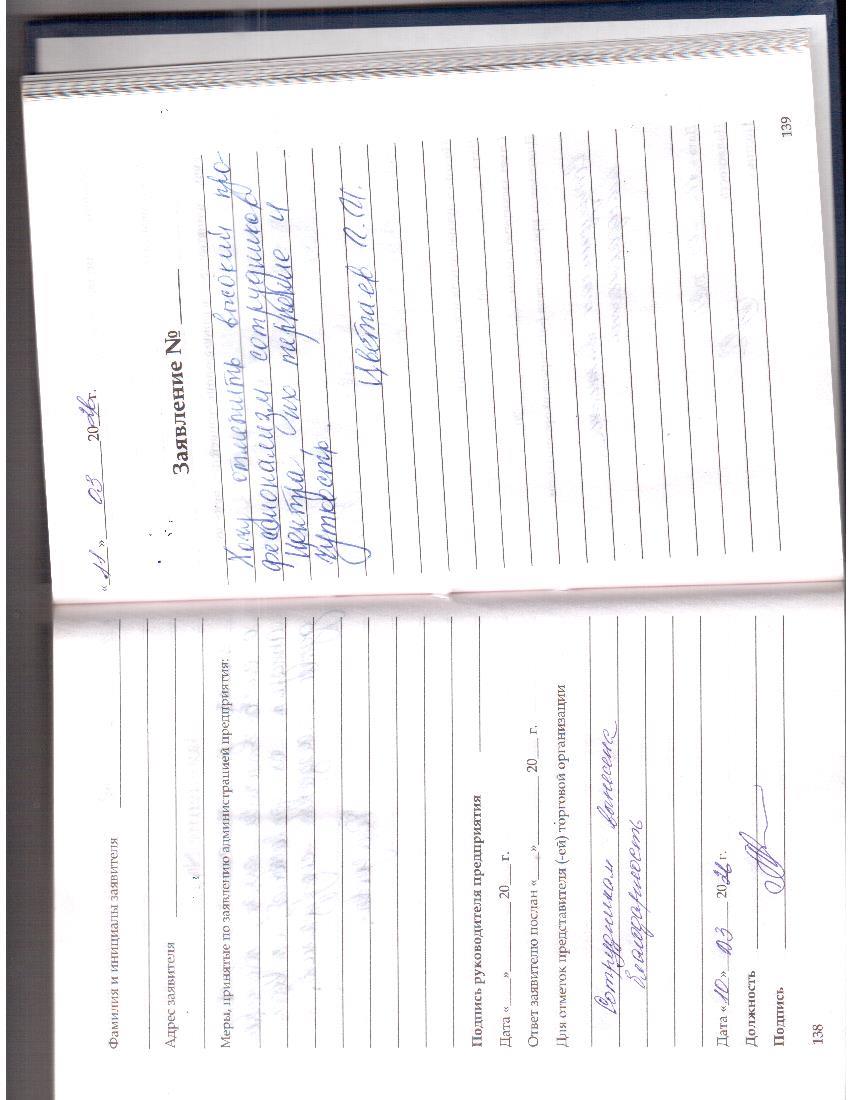 Фамилия и инициалы заявителя
Адрес заявителя
Меры, принятые по заявлению администрацией предприятия:
Подпись руководителя предприятия
Дата «___» ______ 20___ г.
Ответ заявителю послан «___» ______ 20___ г.
Для отметок представителя (-ей) торговой организации
Сотрудникам вынесена
благодарность
Дата «10» 03 2026 г.
Должность
Подпись
138
«11» 03 2026 г.
Заявление № ____
Хочу отметить высокий про
фессионализм сотрудников
центра, их терпение и
чуткость.
Цветаев П.И.
139